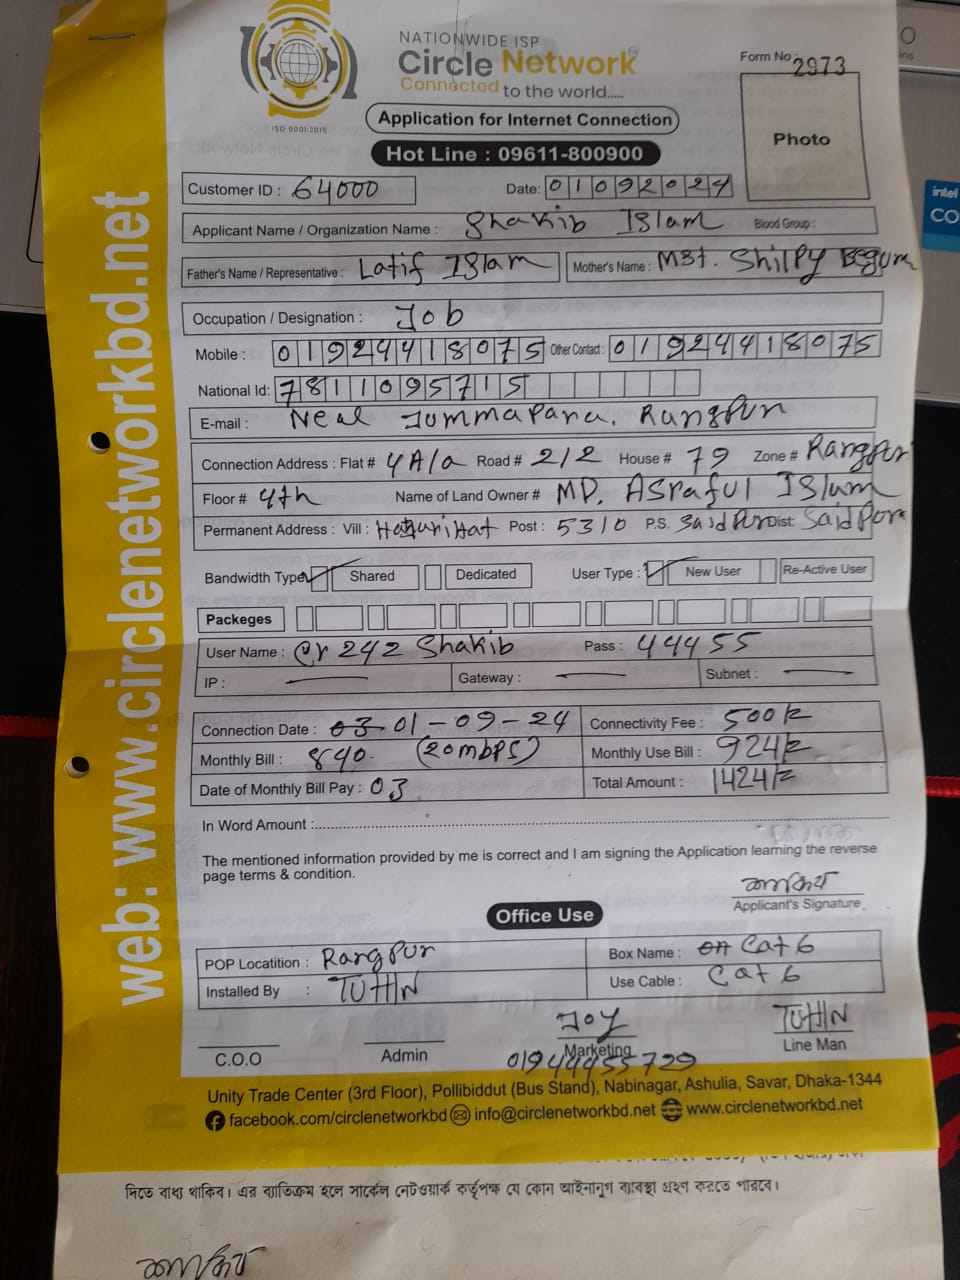 NATIONWIDE ISP
Circle Network
Connected to the world.....
ISO 9001:2015
Form No : 2973
Photo
Application for Internet Connection
Hot Line : 09611-800900
Customer ID : 64000
Date: 01092024
Applicant Name / Organization Name : Shakib Islam
Blood Group :
Father's Name / Representative : Latif Islam
Mother's Name : Mst. Shilpy Begum
Occupation / Designation : Job
Mobile : 01924418075
Other Contact : 01924418075
National Id: 7811095715
E-mail : Neal Jummapara, Rangpur
Connection Address : Flat # 4A/a Road # 2/2 House # 79 Zone # Rangpur
Floor # 4th Name of Land Owner # MD. Asraful Islam
Permanent Address : Vill : Post : 5310 P.S. SaidPur Dist: SaidPor
Bandwidth Type Shared Dedicated
User Type : New User Re-Active User
Packeges
User Name : @r242 Shakib Pass : 44455
IP : Gateway : Subnet :
Connection Date : 03 01-09-24
Connectivity Fee : 500/=
Monthly Bill : 840 (20mbps)
Monthly Use Bill : 924/=
Date of Monthly Bill Pay : 03
Total Amount : 1424/=
In Word Amount :
The mentioned information provided by me is correct and I am signing the Application learning the reverse
page terms & condition.
Applicant's Signature
Office Use
POP Locatition : Rangpur
Box Name : Cat 6
Installed By : TUHIN
Use Cable : Cat 6
C.O.O
Admin
Joy
Marketing
01944455729
TUHIN
Line Man
Unity Trade Center (3rd Floor), Pollibiddut (Bus Stand), Nabinagar, Ashulia, Savar, Dhaka-1344
facebook.com/circlenetworkbd info@circlenetworkbd.net www.circlenetworkbd.net
web: www.circlenetworkbd.net
দিতে বাধ্য থাকিব। এর ব্যতিক্রম হলে সার্কেল নেটওয়ার্ক কর্তৃপক্ষ যে কোন আইনানুগ ব্যবস্থা গ্রহণ করতে পারবে।
intel
CO